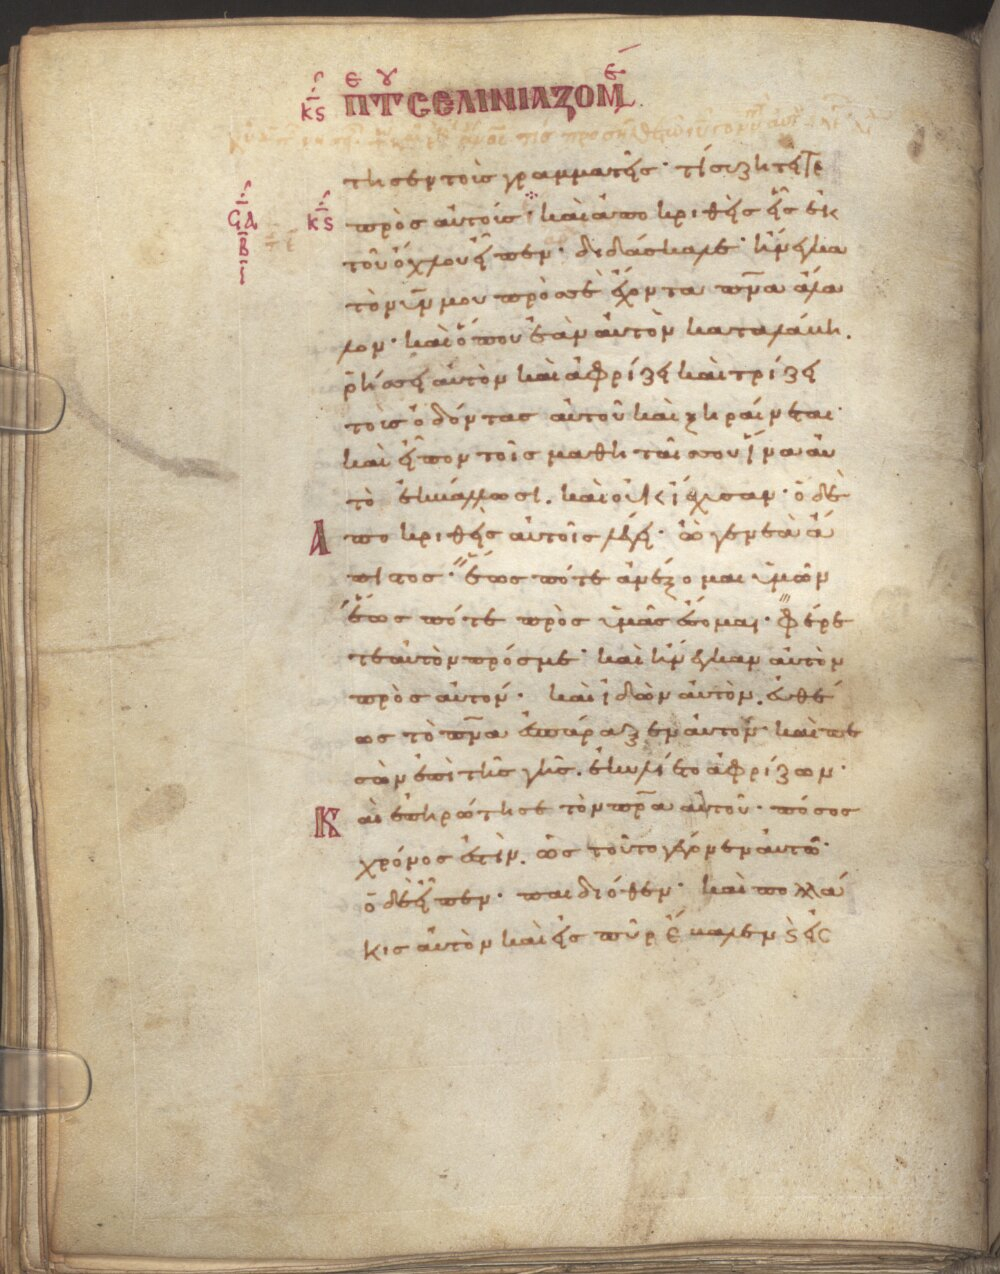 κς ΠΕΡΙ ΤΟΥ CΕΛΙΝΙΑΖΟΜΕ
τησεν τοὺς γραμματεῖς· τί συζητεῖτε
πρὸς αὐτούς· καὶ ἀποκριθεὶς εἷς ἐκ
τοῦ ὄχλου εἶπεν· διδάσκαλε· ἤνεγκα
τὸν υν μου πρὸς σὲ ἔχοντα πνα ἄλα
λον· καὶ ὅπου ἐὰν αὐτὸν καταλάβη.
ῥήσσει αὐτὸν καὶ ἀφρίζει καὶ τρίζει
τοὺς ὀδόντας αὐτοῦ καὶ ξηραίνεται·
καὶ εἶπον τοῖς μαθηταῖς σου ἵνα αὐ
τὸ ἐκβάλλωσι. καὶ οὐκ ἴσχυσαν· ὁ δὲ
Απο κριθεὶς αὐτοῖς λέγει· ὦ γενεὰ ἄ
πιστος· ἕως πότε ἀνέξομαι ὑμῶν
ἕως πότε πρὸς ὑμᾶς ἔσομαι· φέρε
τε αὐτὸν πρός με· καὶ ἤνεγκαν αὐτὸν
πρὸς αὐτόν· καὶ ἰδὼν αὐτὸν. εὐθέ
ως τὸ πνα ἐσπάραξεν αὐτόν· καὶ πε
σὼν ἐπὶ τῆς γῆς. ἐκυλίετο ἀφρίζων·
Καὶ ἐπηρώτησε τὸν πρα αὐτοῦ· πόσος
χρόνος ἐστὶν. ὡς τοῦτο γέγονεν αὐτῶ·
ὁ δὲ εἶπεν· παιδιόθεν· καὶ πολλά
κις αὐτὸν καὶ εἰς πῦρ ἔβαλεν ϗ εἰς